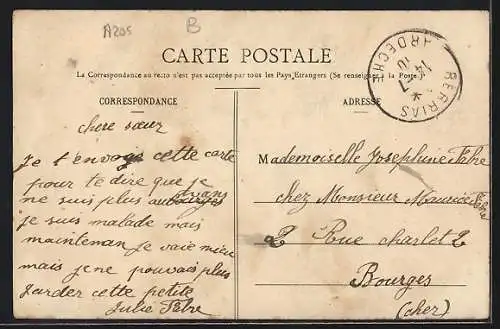 A205
B
CARTE POSTALE
La Correspondance au recto n'est pas acceptée par tous les Pays Etrangers (Se renseigner à la Poste)
BERRIAS
14-7
10
ARDÈCHE
CORRESPONDANCE
chere sœur
Je t'envoye cette carte
pour te dire que je
ne suis plus au
je suis malade mais
maintenan Je vaie mieu
mais jene pouvais plus
garder cette petite
Julie Fabre
ADRESSE
Mademoiselle Josephine Fabre
chez Monsieur Maurice Fabre
2 Rue charlet 2
Bourges
(cher)